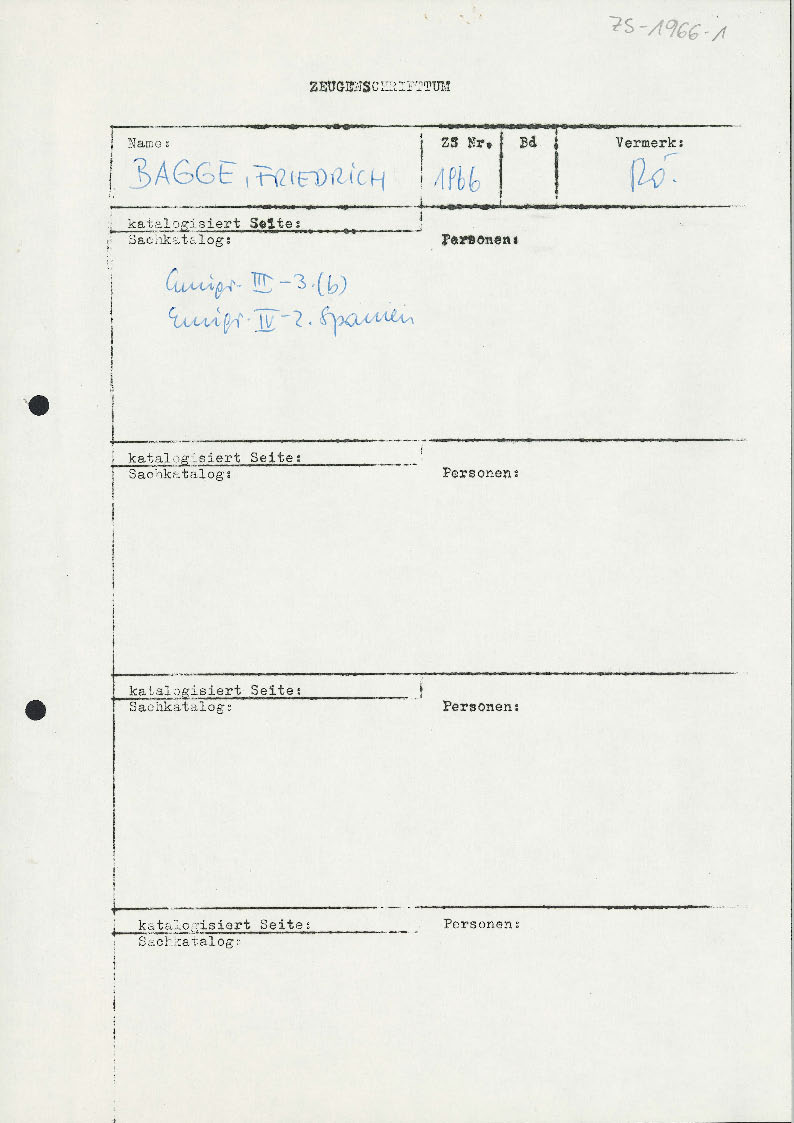 ZS-1966-1
ZEUGENSCHRIFTTUM
Name: ZS Nr. Bd Vermerk:
BAGGE, FRIEDRICH 1966 Rö.
katalogisiert Seite:
Sachkatalog: Personen:
Emigr. III - 3.(b)
Emigr. IV - 2. Spanien
katalogisiert Seite:
Sachkatalog: Personen:
katalogisiert Seite:
Sachkatalog: Personen:
katalogisiert Seite: Personen:
Sachkatalog: